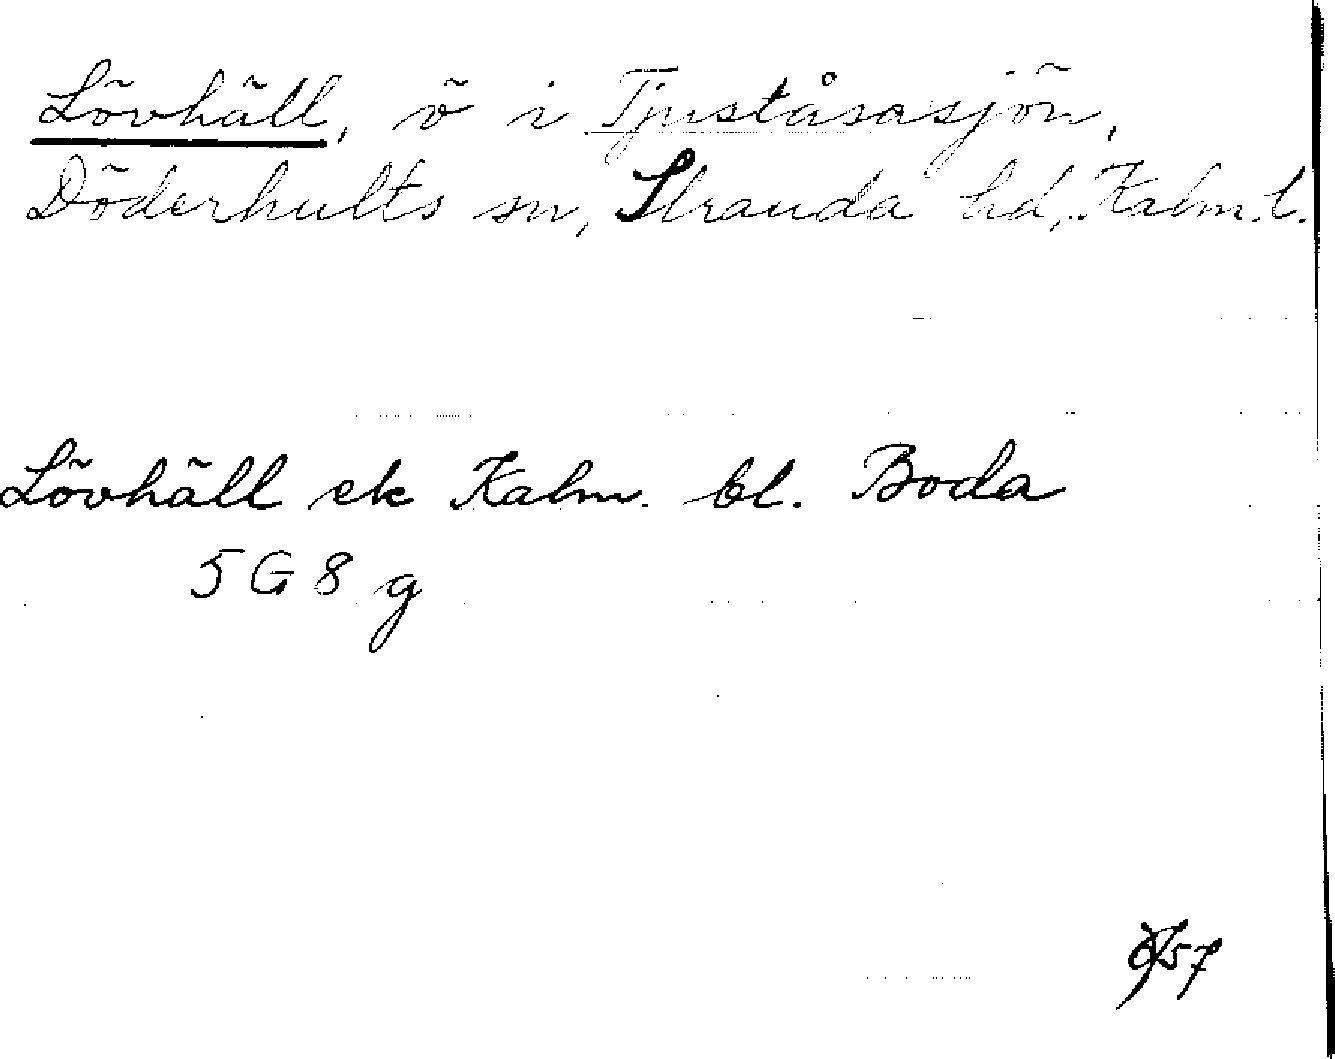 Lövhäll, ö i Tjuståsasjön,
Döderhults sn, Stranda hd, Kalm. l.
Lövhäll ek Kalm. bl. Boda
5 G 8 g